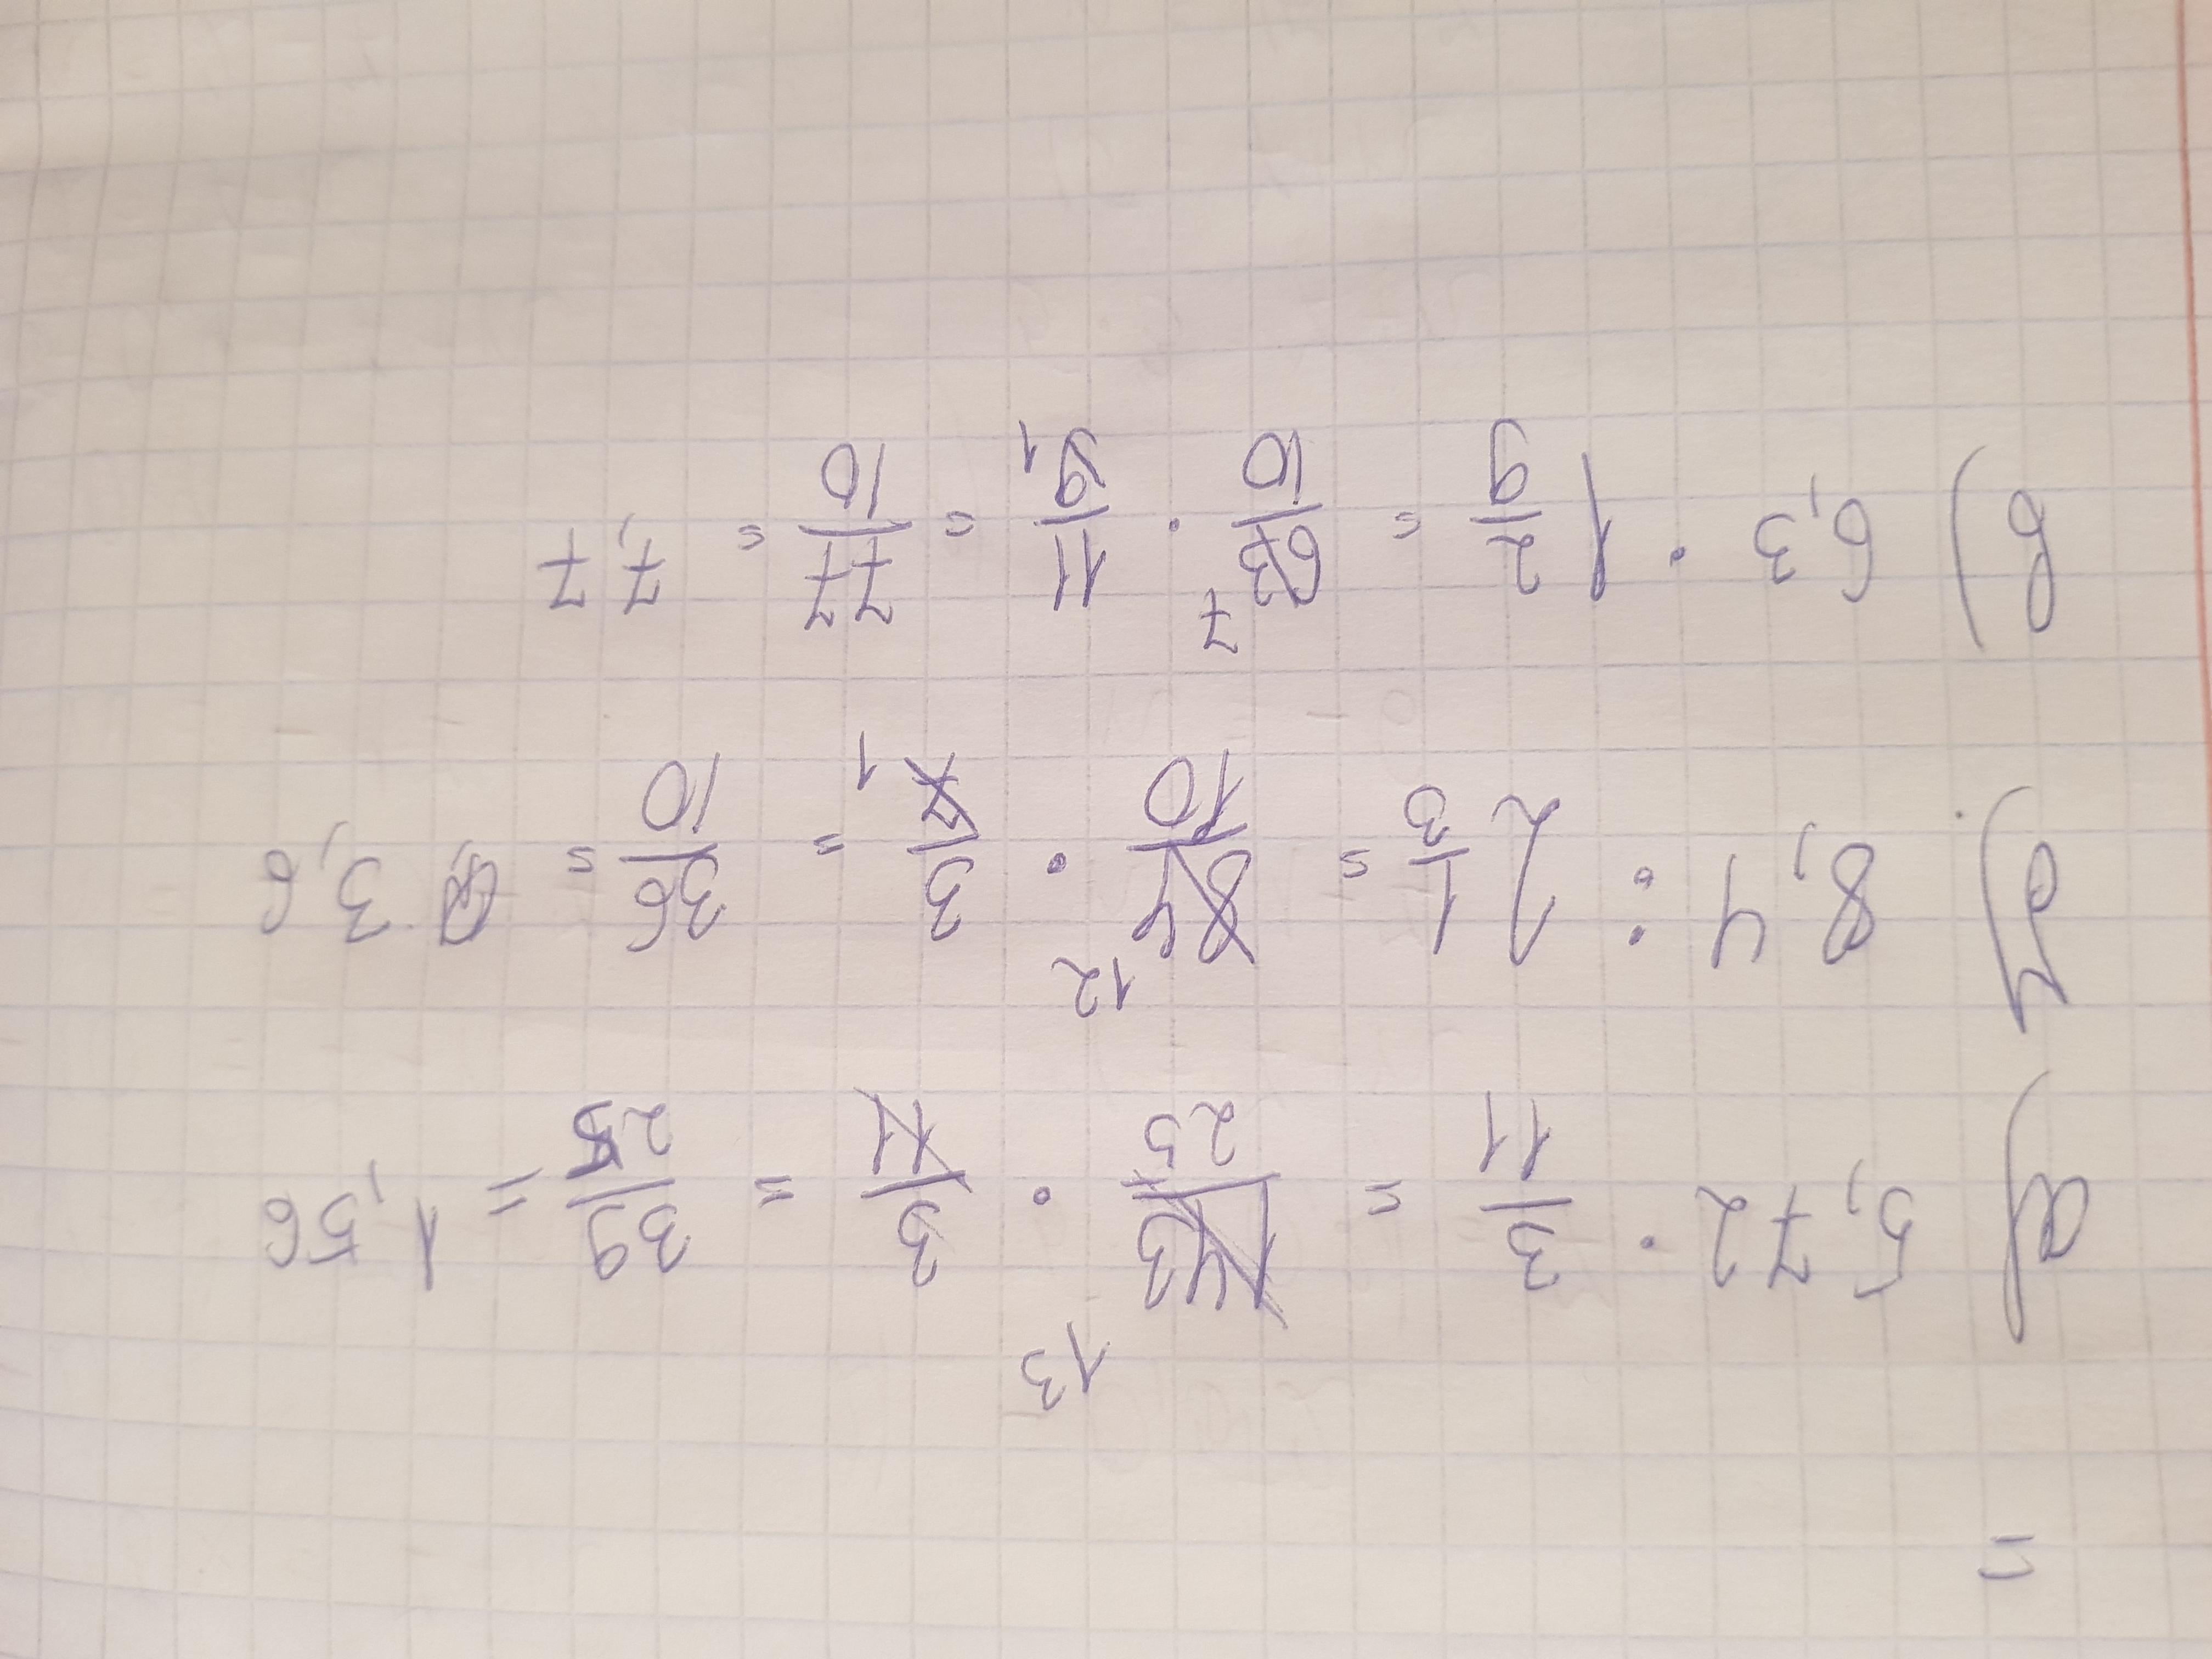 =
а) 5,72 · 3/11 = 143/25 · 3/11 = 39/25 = 1,56
13
б) 8,4 : 2 1/3 = 84/10 · 3/7 = 36/10 = 3,6
12 1
в) 6,3 · 1 2/9 = 63/10 · 11/9 = 77/10 = 7,7
7 1